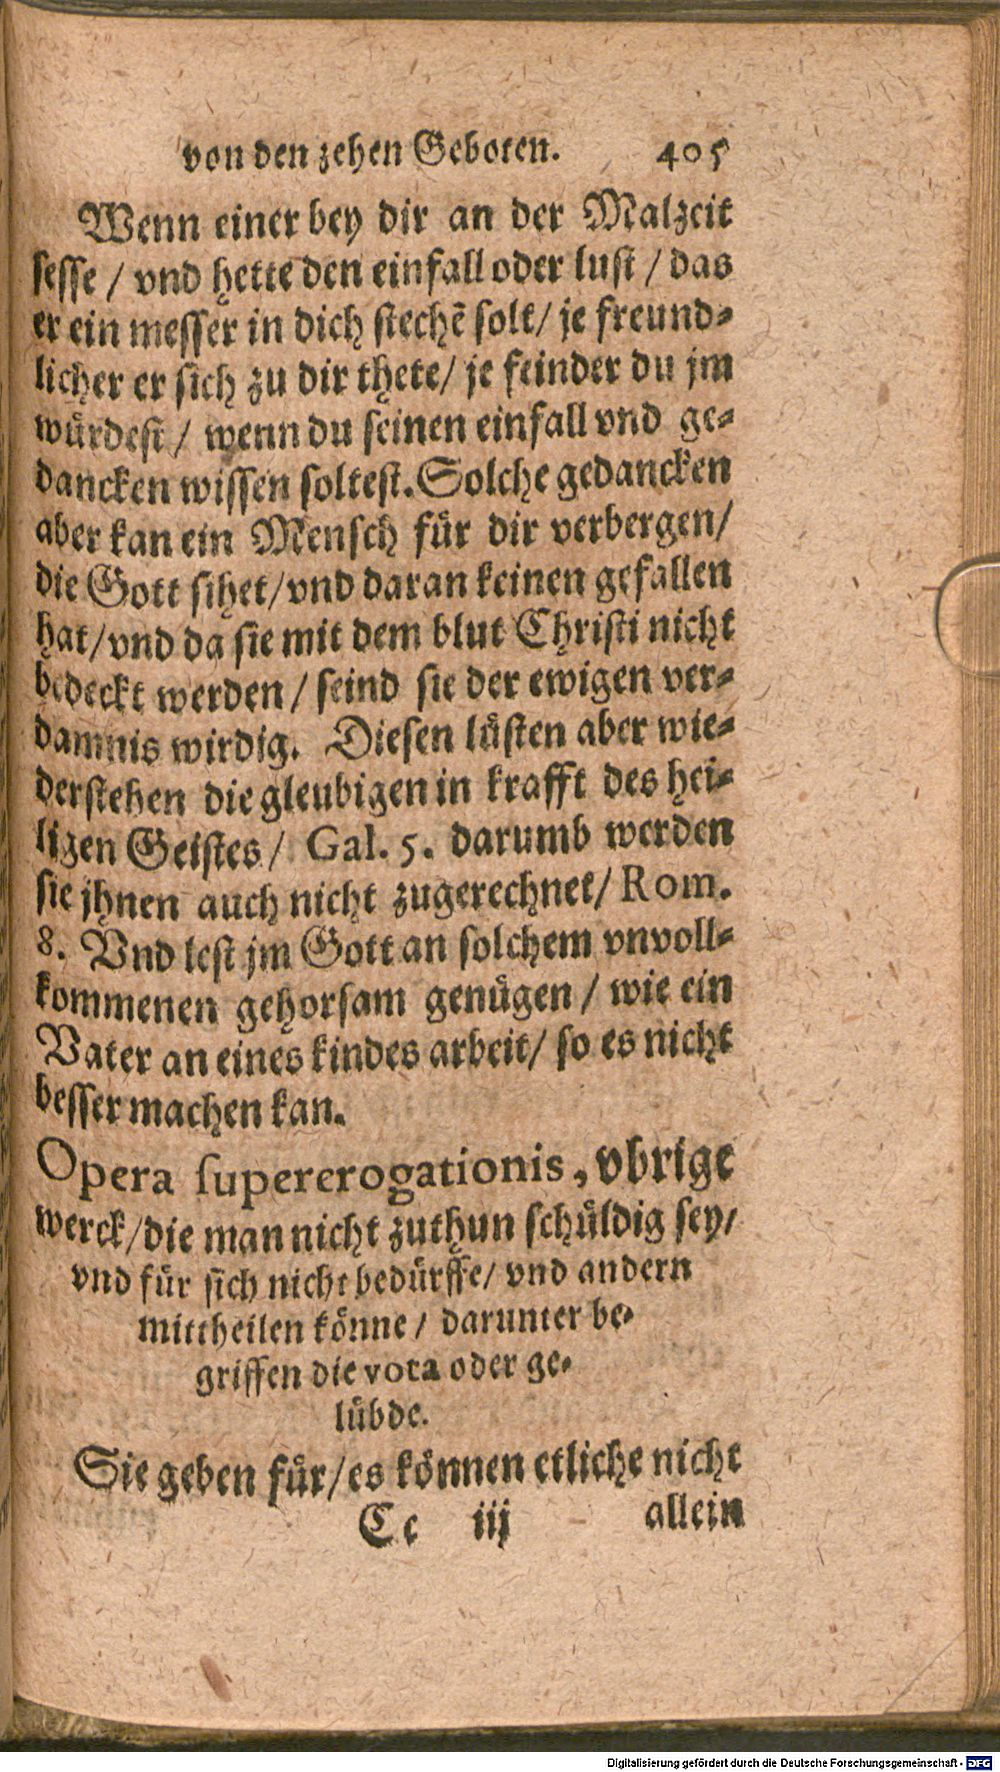 von den zehen Geboten. 405
Wenn einer bey dir an der Malzeit
sesse / vnd hette den einfall oder lust / das
er ein messer in dich stechē solt / je freund-
licher er sich zu dir thete / je feinder du jm
würdest / wenn du seinen einfall vnd ge-
dancken wissen soltest. Solche gedancken
aber kan ein Mensch für dir verbergen /
die Gott sihet / vnd daran keinen gefallen
hat / vnd da sie mit dem blut Christi nicht
bedeckt werden / seind sie der ewigen ver-
damnis wirdig. Diesen lüsten aber wie-
derstehen die gleubigen in krafft des hei-
ligen Geistes / Gal. 5. darumb werden
sie jhnen auch nicht zugerechnet / Rom.
8. Vnd lest jm Gott an solchem vnvoll-
kommenen gehorsam genügen / wie ein
Vater an eines kindes arbeit / so es nicht
besser machen kan.
Opera supererogationis, vbrige
werck / die man nicht zuthun schüldig sey /
vnd für sich nicht bedürffe / vnd andern
mittheilen könne / darunter be-
griffen die vota oder ge-
lübde.
Sie geben für / es können etliche nicht
Cc iij allein
Digitalisierung gefördert durch die Deutsche Forschungsgemeinschaft - DFG